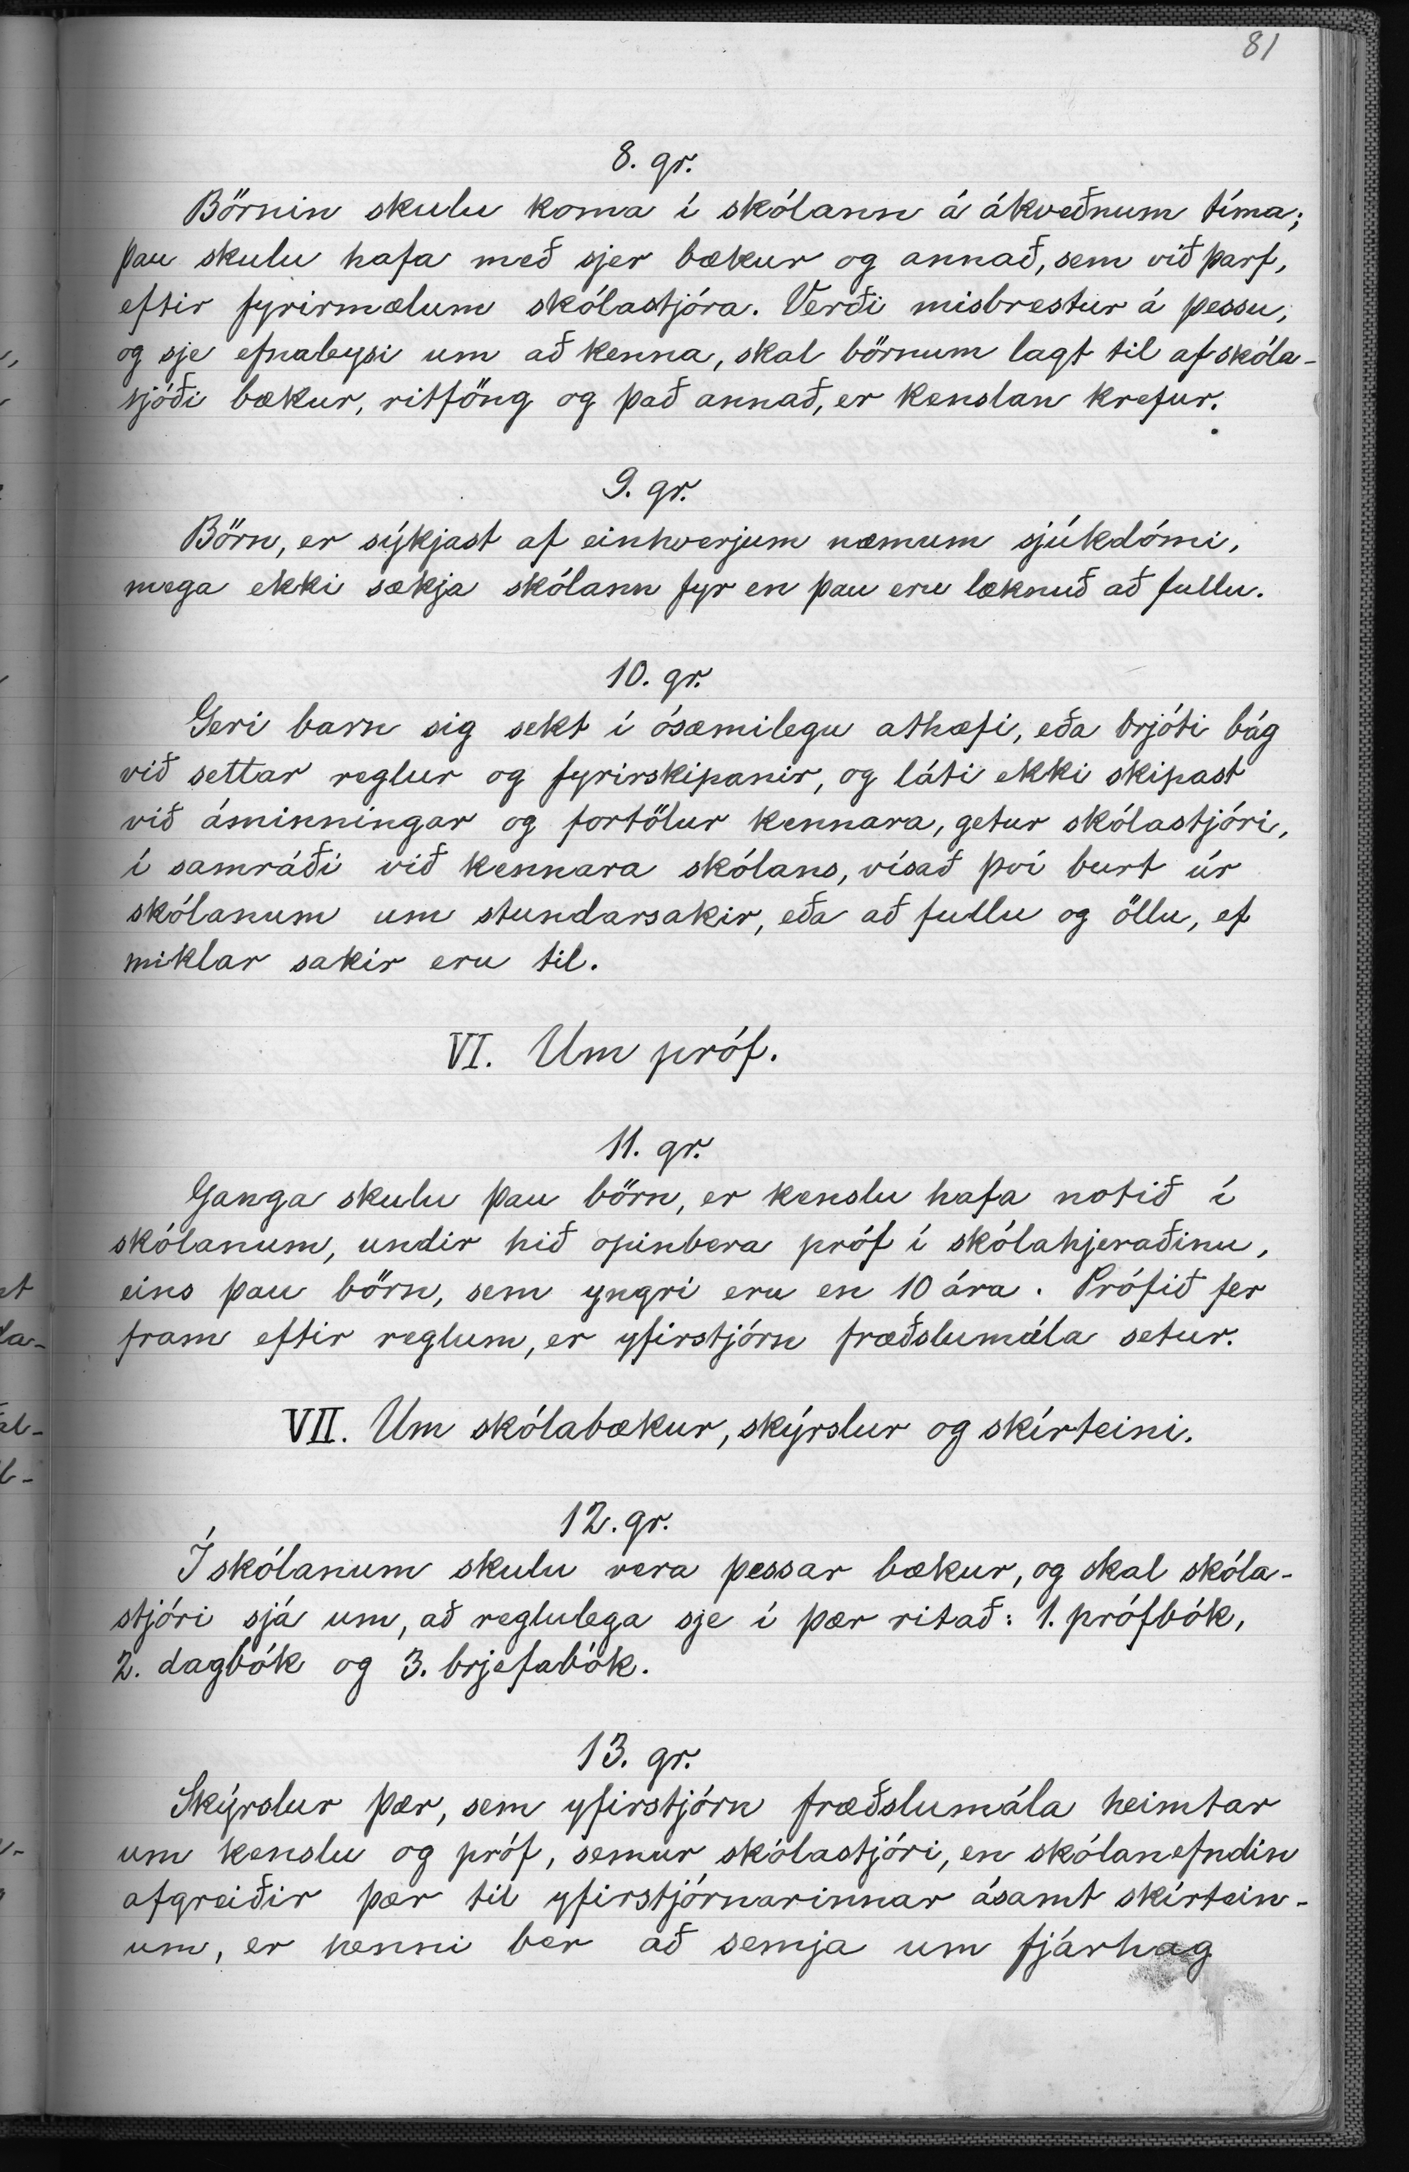 81
8. gr.
Börnin skulu koma í skólann á ákveðnum tíma;
þau skulu hafa með sjer bækur og annað, sem við þarf,
eftir fyrirmælum skólastjóra. Verði misbrestur á þessu,
og sje efnaleysi um að kenna, skal börnum lagt til af skóla-
sjóði bækur, ritföng og það annað, er kenslan krefur.
9. gr.
Börn, er sýkjast af einhverjum næmum sjúkdómi,
mega ekki sækja skólann fyr en þau eru læknuð að fullu.
10. gr.
Geri barn sig sekt í ósæmilegu athæfi, eða brjóti bág
við settar reglur og fyrirskipanir, og láti ekki skipast
við áminningar og fortölur kennara, getur skólastjóri,
í samráði við kennara skólans, vísað því burt úr
skólanum um stundarsakir, eða að fullu og öllu, ef
miklar sakir eru til.
VI. Um próf.
11. gr.
Ganga skulu þau börn, er kenslu hafa notið í
skólanum, undir hið opinbera próf í skólahjeraðinu,
eins þau börn, sem yngri eru en 10 ára. Prófið fer
fram eftir reglum, er yfirstjórn fræðslumála setur.
VII. Um skólabækur, skýrslur og skírteini.
12. gr.
Í skólanum skulu vera þessar bækur, og skal skóla-
stjóri sjá um, að reglulega sje í þær ritað: 1. prófbók,
2. dagbók og 3. brjefabók.
13. gr.
Skýrslur þær, sem yfirstjórn fræðslumála heimtar
um kenslu og próf, semur skólastjóri, en skólanefndin
afgreiðir þær til yfirstjórnarinnar ásamt skírtein-
um, er henni ber að semja um fjárhag